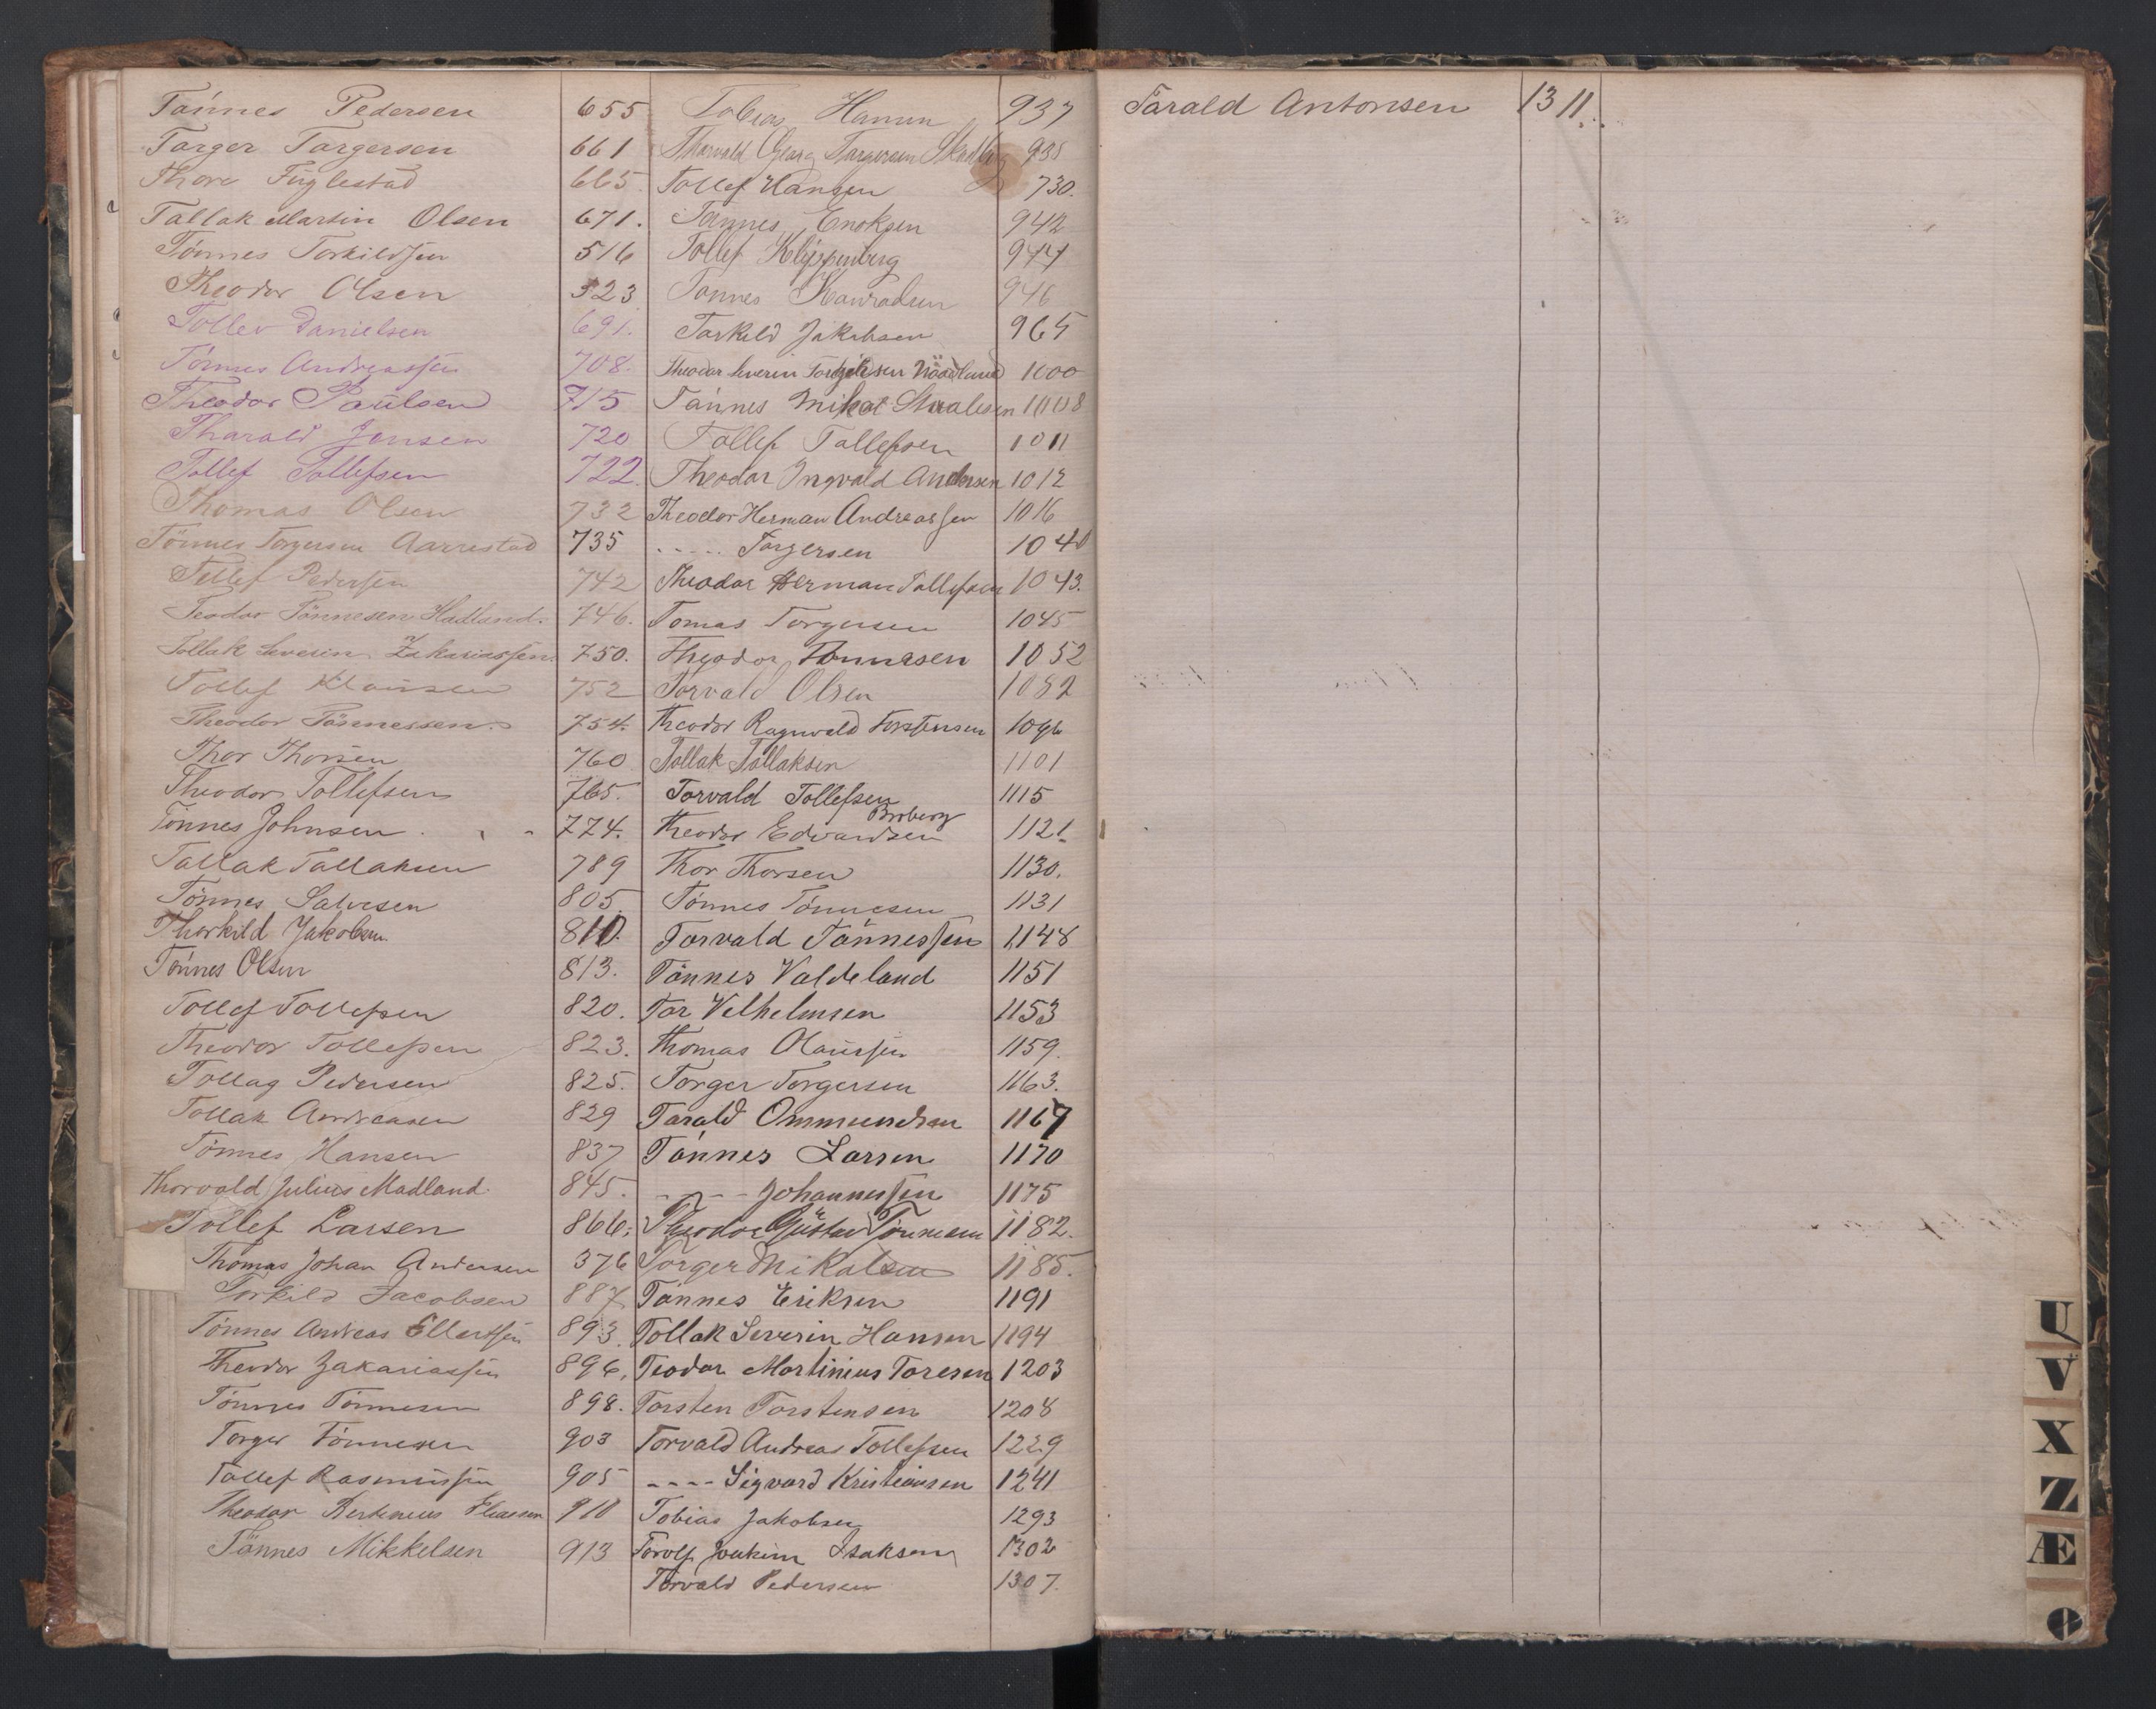 Tönnes Pedersen 655
Torger Torgersen 661
Thore Fuglestad 665.
Tallak Martin Olsen 671.
Tönnes Torkildsen 516
Theodor Olsen 523
Tollev Danielsen 691.
Tönnes Andreassen 708.
Theodor Paulsen 715
Tharald Jensen 720
Tollef Tollefsen 722.
Thomas Olsen 732
Tönnes Torgersen Aarrestad 735
Tollef Pedersen 742
Teodor Tönnesen Hadland. 746.
Tollak Severin Zakariassen 750.
Tollef Klausen 752
Theodor Tönnessen. 754.
Thor Thorsen 760
Theodor Tollefsen 765.
Tönnes Johnsen 774.
Tallak Tallaksen 789
Tönnes Salvesen 805.
Thorkild Jakobsen. 810.
Tönnes Olsen 813.
Tollef Tollefsen 820.
Theodor Tollefsen 823.
Tollag Pedersen 825.
Tollak Andreasen 829
Tönnes Hansen 837
Thorvald Julius Madland. 845.
Tollef Larsen 866.
Thomas Johan Andersen 376
Torkild Jacobsen 887
Tönnes Andreas Ellertsen 893.
Theodor Zakariassen 896.
Tönnes Tönnesen 898.
Torger Tönnesen 903
Tollef Rasmussen 905
Theodor Eliassen 910
Tönnes Mikkelsen 913
Tobias Hamm 937
Thorvald Georg Torgersen 938
Tollef Hansen 730.
Tönnes Enoksen 942
Tollef Kleppenberg 944
Tönnes Konradsen 946
Torkild Jakobsen 965
Theodor Severin Torkildsen Nödland 1000
Tönnes Mikal Staalesen 1008
Tollef Tollefsen 1011
Theodor Ingvald Andersen 1012
Theodor Herman Andreassen 1016
----- Torgersen 1040
Theodor Herman Tollefsen 1043.
Tomas Torgersen 1045
Theodor Tönnesen 1052
Torvald Olsen 1082
Theodor Ragnvald Torstensen 1096
Tallak Tallaksen 1101
Torvald Tollefsen 1115
Broberg
Theodor Edvardsen 1121
Thor Thorsen 1130.
Tönnes Tönnesen 1131
Torvald Tönnessen 1148
Tönnes Valdeland 1151
Tor Velhelmsen 1153
Thomas Olaussen 1159.
Torger Torgersen 1163.
Tarald Ommundsen 1167
Tönnes Larsen 1170
---- Johannessen 1175
Theodor Gustav Tönnesen 1182.
Torger Mikalsen 1185.
Tönnes Eriksen 1191
Tollak Severin Hansen 1194
Teodor Martinius Toresen 1203
Torsten Torstensen 1208
Torvald Andreas Tollefsen 1229
---- Sigvard Kristiansen 1241
Tobias Jakobsen 1293
Torolf Joakim Isaksen 1302
Torvald Pedersen 1307.
Tarald Antonsen 1311.
U
V
X
Z
Æ
Ø